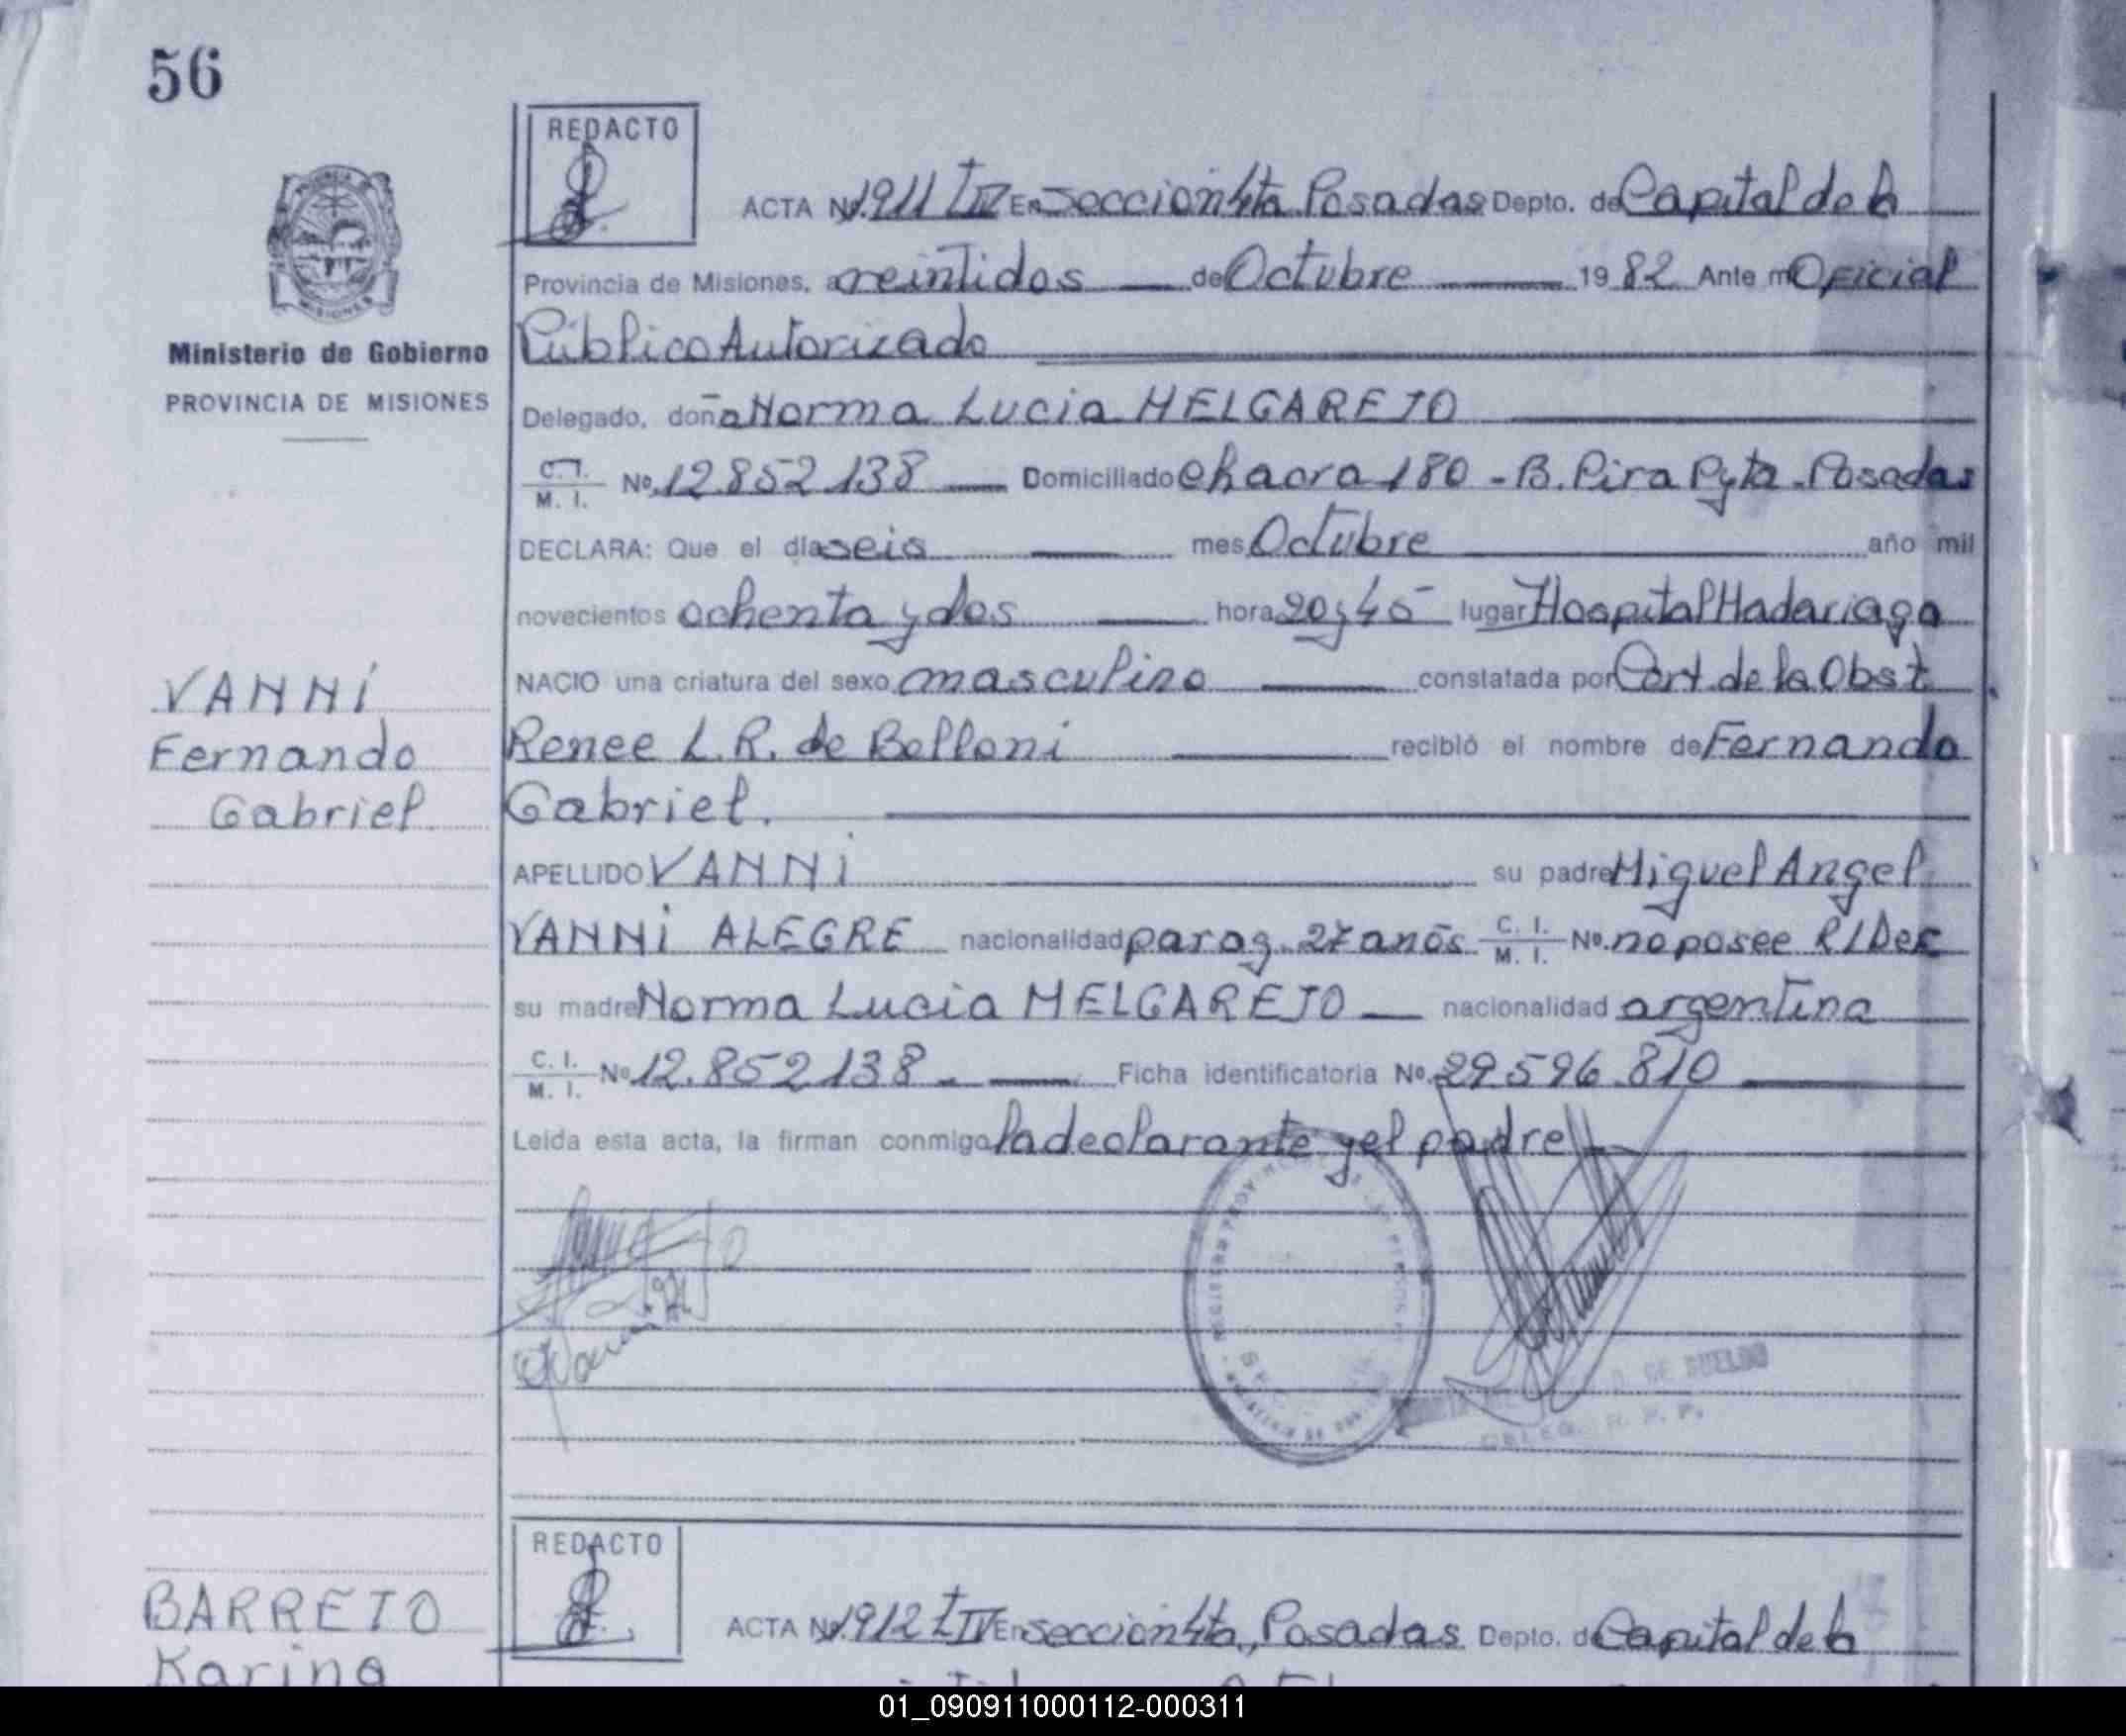 56
REDACTO
ACTA Nº 1911 T IV En Seccion 4ta Posadas Depto. de Capital de la
Provincia de Misiones, a veintidos de Octubre 1982 Ante mi Oficial
Público Autorizado
Ministerio de Gobierno
PROVINCIA DE MISIONES
Delegado, doña Norma Lucia MELGAREJO
C. I. / M. I. Nº 12.852.138 Domiciliado Chacra 180 - B. Pira Pyta - Posadas
DECLARA: Que el día seis mes Octubre año mil
novecientos ochenta y dos hora 20 y 45 lugar Hospital Madariaga
NACIO una criatura del sexo masculino constatada por Cert de la Obst
VANNI
Fernando
Gabriel
Renee L. R. de Belloni recibió el nombre de Fernando
Gabriel.
APELLIDO VANNI su padre Miguel Angel
VANNI ALEGRE nacionalidad parag. 27 años C. I. / M. I. Nº no posee R/Dec
su madre Norma Lucia MELGAREJO nacionalidad argentina
C. I. / M. I. Nº 12.852.138 Ficha identificatoria Nº 29.596.810
Leída esta acta, la firman conmigo la declarante y el padre
DE SUELDO
DELEG. R. P. P.
REDACTO
BARRETO
Karina
ACTA Nº 1912 T IV En Seccion 4ta, Posadas Depto. de Capital de la
01_090911000112-000311